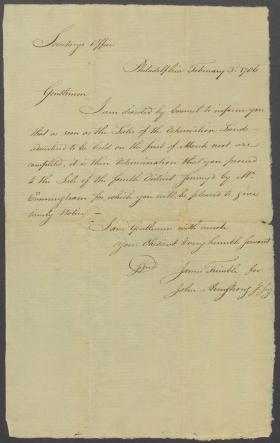 Secretarys Office
Philadelphia February 3d. 1786
Gentlemen
I am directed by Council to inform you
that as soon as the Sales of the Depreciation Lands
advertised to be held on the first of March next are
compleated, it is their determination that you proceed
to the Sale of the fourth District survey'd by Mr.
Cunningham for which you will be pleased to give
timely Notice —
I am Gentlemen with much
your Obedient & very humble Servant
James Trimble for
John Armstrong Jr.